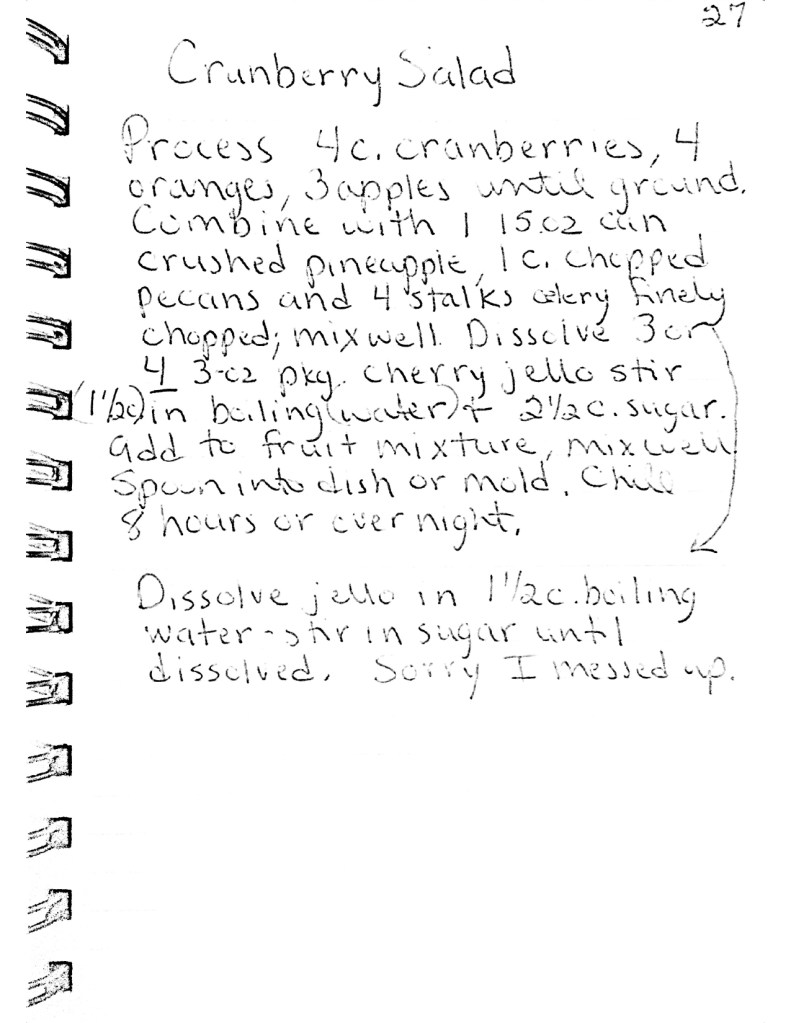 27
Cranberry Salad
Process 4c. cranberries, 4
oranges, 3 apples until ground.
Combine with 1 15.oz can
crushed pineapple, 1 c. chopped
pecans and 4 stalks celery finely
chopped; mix well. Dissolve 3 or
4 3-oz pkg. cherry jello stir
(1 1/2c) in boiling (water) + 2 1/2 c. sugar.
add to fruit mixture, mix well
Spoon into dish or mold. Chill
8 hours or over night.
Dissolve jello in 1 1/2 c. boiling
water - stir in sugar until
dissolved. Sorry I messed up.